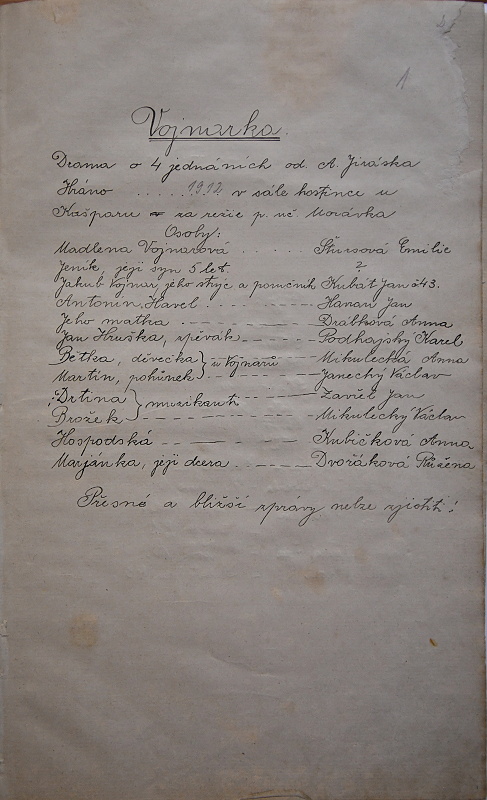 1
Vojnarka.
Drama o 4 jednáních od. A. Jiráska
Hráno ..... 1912 v sále hostince u
Kašparu za režie p. uč Morávka
Osoby:
Madlena Vojnarová . . . Štursová Emilie
Jeník, její syn 5 let. ?
Jakub Vojnar, jeho strýc a poručník Kubát Jan č 43.
Antonín Havel . . - - - - Hanan Jan
Jeho matka - - - - - - Drábková Anna
Jan Hruška, zpěvák - - - - - Podhajský Karel
Bětka, děvečka } u Vojnarů - - - - Mikulecká Anna
Martin, pohůnek - - - - Janecký Václav
Drtina } muzikanti - - - - Zavřel Jan
Brožek - - - - Mikulecký Václav
Hospodská - - - - - - Kubíčková Anna
Marjánka, její dcera - - - - - Dvořáková Růžena
Přesné a bližší zprávy nelze zjistiti!